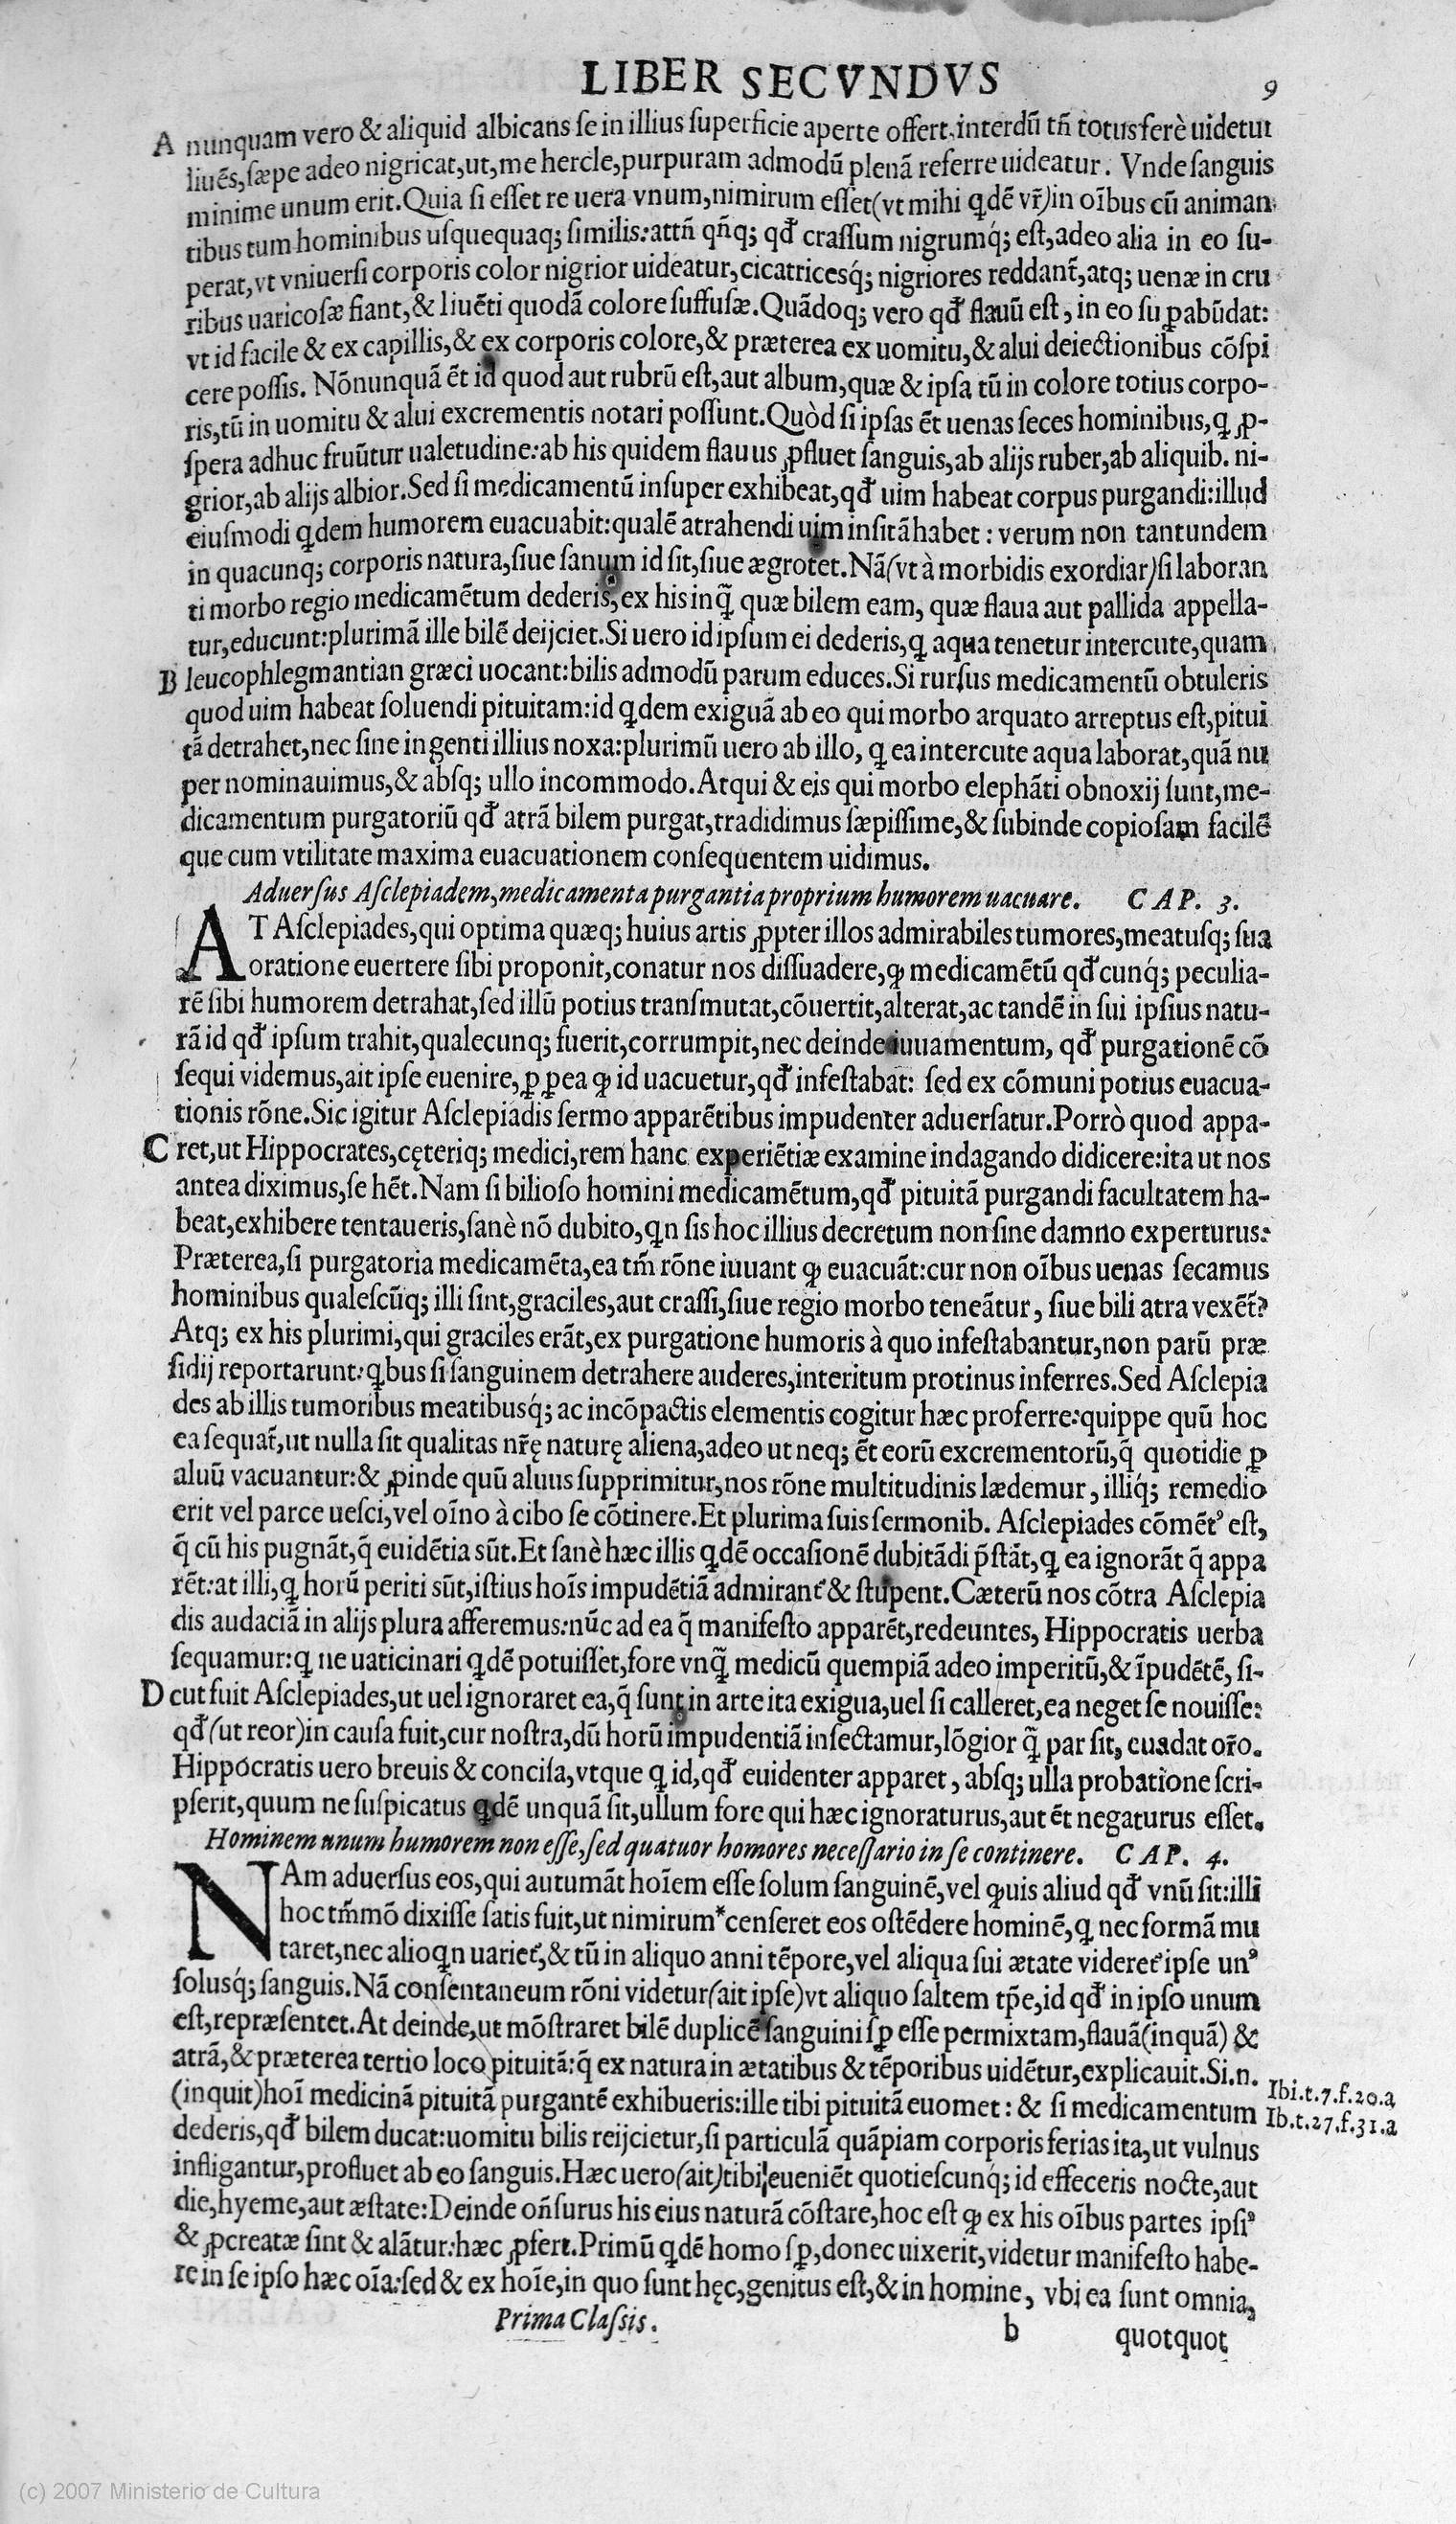 LIBER SECVNDVS 9
A nunquam vero & aliquid albicans se in illius superficie aperte offert, interdũ tñ totus ferè uidetur
liuẽs, sæpe adeo nigricat, ut, me hercle, purpuram admodũ plenã referre uideatur. Vnde sanguis
minime unum erit. Quia si esset re uera vnum, nimirum esset (vt mihi qdẽ vr̃) in oĩbus cũ animan
tibus tum hominibus usquequaq; similis: attñ qñq; qđ crassum nigrumq́; est, adeo alia in eo su-
perat, vt vniuersi corporis color nigrior uideatur, cicatricesq́; nigriores reddant̃, atq; uenæ in cru
ribus uaricosæ fiant, & liuẽti quodã colore suffusæ. Quãdoq; vero qđ flauũ est, in eo su ꝑabũdat:
vt id facile & ex capillis, & ex corporis colore, & præterea ex uomitu, & alui deiectionibus cõspi
cere possis. Nõnunquã ẽt id quod aut rubrũ est, aut album, quæ & ipsa tũ in colore totius corpo-
ris, tũ in uomitu & alui excrementis notari possunt. Quòd si ipsas ẽt uenas seces hominibus, ꝗ ꝓ-
spera adhuc fruũtur ualetudine: ab his quidem flauus ꝓfluet sanguis, ab alijs ruber, ab aliquib. ni-
grior, ab alijs albior. Sed si medicamentũ insuper exhibeat, qđ uim habeat corpus purgandi: illud
eiusmodi ꝗdem humorem euacuabit: qualẽ atrahendi uim insitã habet: verum non tantundem
in quacunq; corporis natura, siue sanum id sit, siue ægrotet. Nã (vt à morbidis exordiar) si laboran
ti morbo regio medicamẽtum dederis, ex his inq̃ quæ bilem eam, quæ flaua aut pallida appella-
tur, educunt: plurimã ille bilẽ deijciet. Si uero id ipsum ei dederis, ꝗ aqua tenetur intercute, quam
B leucophlegmantian græci uocant: bilis admodũ parum educes. Si rursus medicamentũ obtuleris
quod uim habeat soluendi pituitam: id ꝗdem exiguã ab eo qui morbo arquato arreptus est, pitui
tã detrahet, nec sine ingenti illius noxa: plurimũ uero ab illo, ꝗ ea intercute aqua laborat, quã nu
per nominauimus, & absq; ullo incommodo. Atqui & eis qui morbo elephãti obnoxij sunt, me-
dicamentum purgatoriũ qđ atrã bilem purgat, tradidimus sæpissime, & subinde copiosam facilẽ
que cum vtilitate maxima euacuationem consequentem uidimus.
Aduersus Asclepiadem, medicamenta purgantia proprium humorem uacuare. CAP. 3.
AT Asclepiades, qui optima quæq; huius artis ꝓpter illos admirabiles tumores, meatusq; sua
oratione euertere sibi proponit, conatur nos dissuadere, ꝙ medicamẽtũ qđcunq́; peculia-
rẽ sibi humorem detrahat, sed illũ potius transmutat, cõuertit, alterat, ac tandẽ in sui ipsius natu-
rã id qđ ipsum trahit, qualecunq; fuerit, corrumpit, nec deinde iuuamentum, qđ purgationẽ cõ
sequi videmus, ait ipse euenire, ꝓpea ꝙ id uacuetur, qđ infestabat: sed ex cõmuni potius euacua-
tionis rõne. Sic igitur Asclepiadis sermo apparẽtibus impudenter aduersatur. Porrò quod appa-
C ret, ut Hippocrates, cęteriq; medici, rem hanc experiẽtiæ examine indagando didicere: ita ut nos
antea diximus, se hẽt. Nam si bilioso homini medicamẽtum, qđ pituitã purgandi facultatem ha-
beat, exhibere tentaueris, sanè nõ dubito, ꝗn sis hoc illius decretum non sine damno experturus:
Præterea, si purgatoria medicamẽta, ea tm̃ rõne iuuant ꝙ euacuãt: cur non oĩbus uenas secamus
hominibus qualescũq; illi sint, graciles, aut crassi, siue regio morbo teneãtur, siue bili atra vexẽt̃?
Atq; ex his plurimi, qui graciles erãt, ex purgatione humoris à quo infestabantur, non parũ præ
sidij reportarunt: ꝗbus si sanguinem detrahere auderes, interitum protinus inferres. Sed Asclepia
des ab illis tumoribus meatibusq́; ac incõpactis elementis cogitur hæc proferre: quippe quũ hoc
ea sequat̃, ut nulla sit qualitas nr̃ę naturę aliena, adeo ut neq; ẽt eorũ excrementorũ, q̃ quotidie ꝑ
aluũ vacuantur: & ꝓinde quũ aluus supprimitur, nos rõne multitudinis lædemur, illiq́; remedio
erit vel parce uesci, vel oĩno à cibo se cõtinere. Et plurima suis sermonib. Asclepiades cõmẽtꝰ est,
q̃ cũ his pugnãt, q̃ euidẽtia sũt. Et sanè hæc illis ꝗdẽ occasionẽ dubitãdi p̃stãt, ꝗ ea ignorãt q̃ appa
rẽt: at illi, ꝗ horũ periti sũt, istius hoĩs impudẽtiã admirant̃ & stupent. Cæterũ nos cõtra Asclepia
dis audaciã in alijs plura afferemus: nũc ad ea q̃ manifesto apparẽt, redeuntes, Hippocratis uerba
sequamur: ꝗ ne uaticinari ꝗdẽ potuisset, fore vnq̃ medicũ quempiã adeo imperitũ, & ĩpudẽtẽ, si-
D cut fuit Asclepiades, ut uel ignoraret ea, q̃ sunt in arte ita exigua, uel si calleret, ea neget se nouisse:
qđ (ut reor) in causa fuit, cur nostra, dũ horũ impudentiã insectamur, lõgior q̃ par sit, euadat or̃o.
Hippocratis uero breuis & concisa, vtque ꝗ id, qđ euidenter apparet, absq; ulla probatione scri-
pserit, quum ne suspicatus ꝗdẽ unquã sit, ullum fore qui hæc ignoraturus, aut ẽt negaturus esset.
Hominem unum humorem non esse, sed quatuor homores necessario in se continere. CAP. 4.
NAm aduersus eos, qui autumãt hoĩem esse solum sanguinẽ, vel ꝙuis aliud qđ vnũ sit: illi
hoc tm̃mõ dixisse satis fuit, ut nimirum * censeret eos ostẽdere hominẽ, ꝗ nec formã mu
taret, nec alioꝗn uariet̃, & tũ in aliquo anni tẽpore, vel aliqua sui ætate videret̃ ipse unꝰ
solusq́; sanguis. Nã consentaneum rõni videtur (ait ipse) vt aliquo saltem tp̃e, id qđ in ipso unum
est, repræsentet. At deinde, ut mõstraret bilẽ duplicẽ sanguini sꝑ esse permixtam, flauã (inquã) &
atrã, & præterea tertio loco pituitã: q̃ ex natura in ætatibus & tẽporibus uidẽtur, explicauit. Si. n.
(inquit) hoĩ medicinã pituitã purgantẽ exhibueris: ille tibi pituitã euomet: & si medicamentum
dederis, qđ bilem ducat: uomitu bilis reijcietur, si particulã quãpiam corporis ferias ita, ut vulnus
infligantur, profluet ab eo sanguis. Hæc uero (ait) tibi eueniẽt quotiescunq́; id effeceris nocte, aut
die, hyeme, aut æstate: Deinde oñsurus his eius naturã cõstare, hoc est ꝙ ex his oĩbus partes ipsiꝰ
& ꝓcreatæ sint & alãtur: hæc ꝓfert. Primũ ꝗdẽ homo sꝑ, donec uixerit, videtur manifesto habe-
re in se ipso hæc oĩa: sed & ex hoĩe, in quo sunt hęc, genitus est, & in homine, vbi ea sunt omnia,
Ibi. t. 7. f. 20. a
Ib. t. 27. f. 31. a
Prima Classis. b quotquot
(c) 2007 Ministerio de Cultura